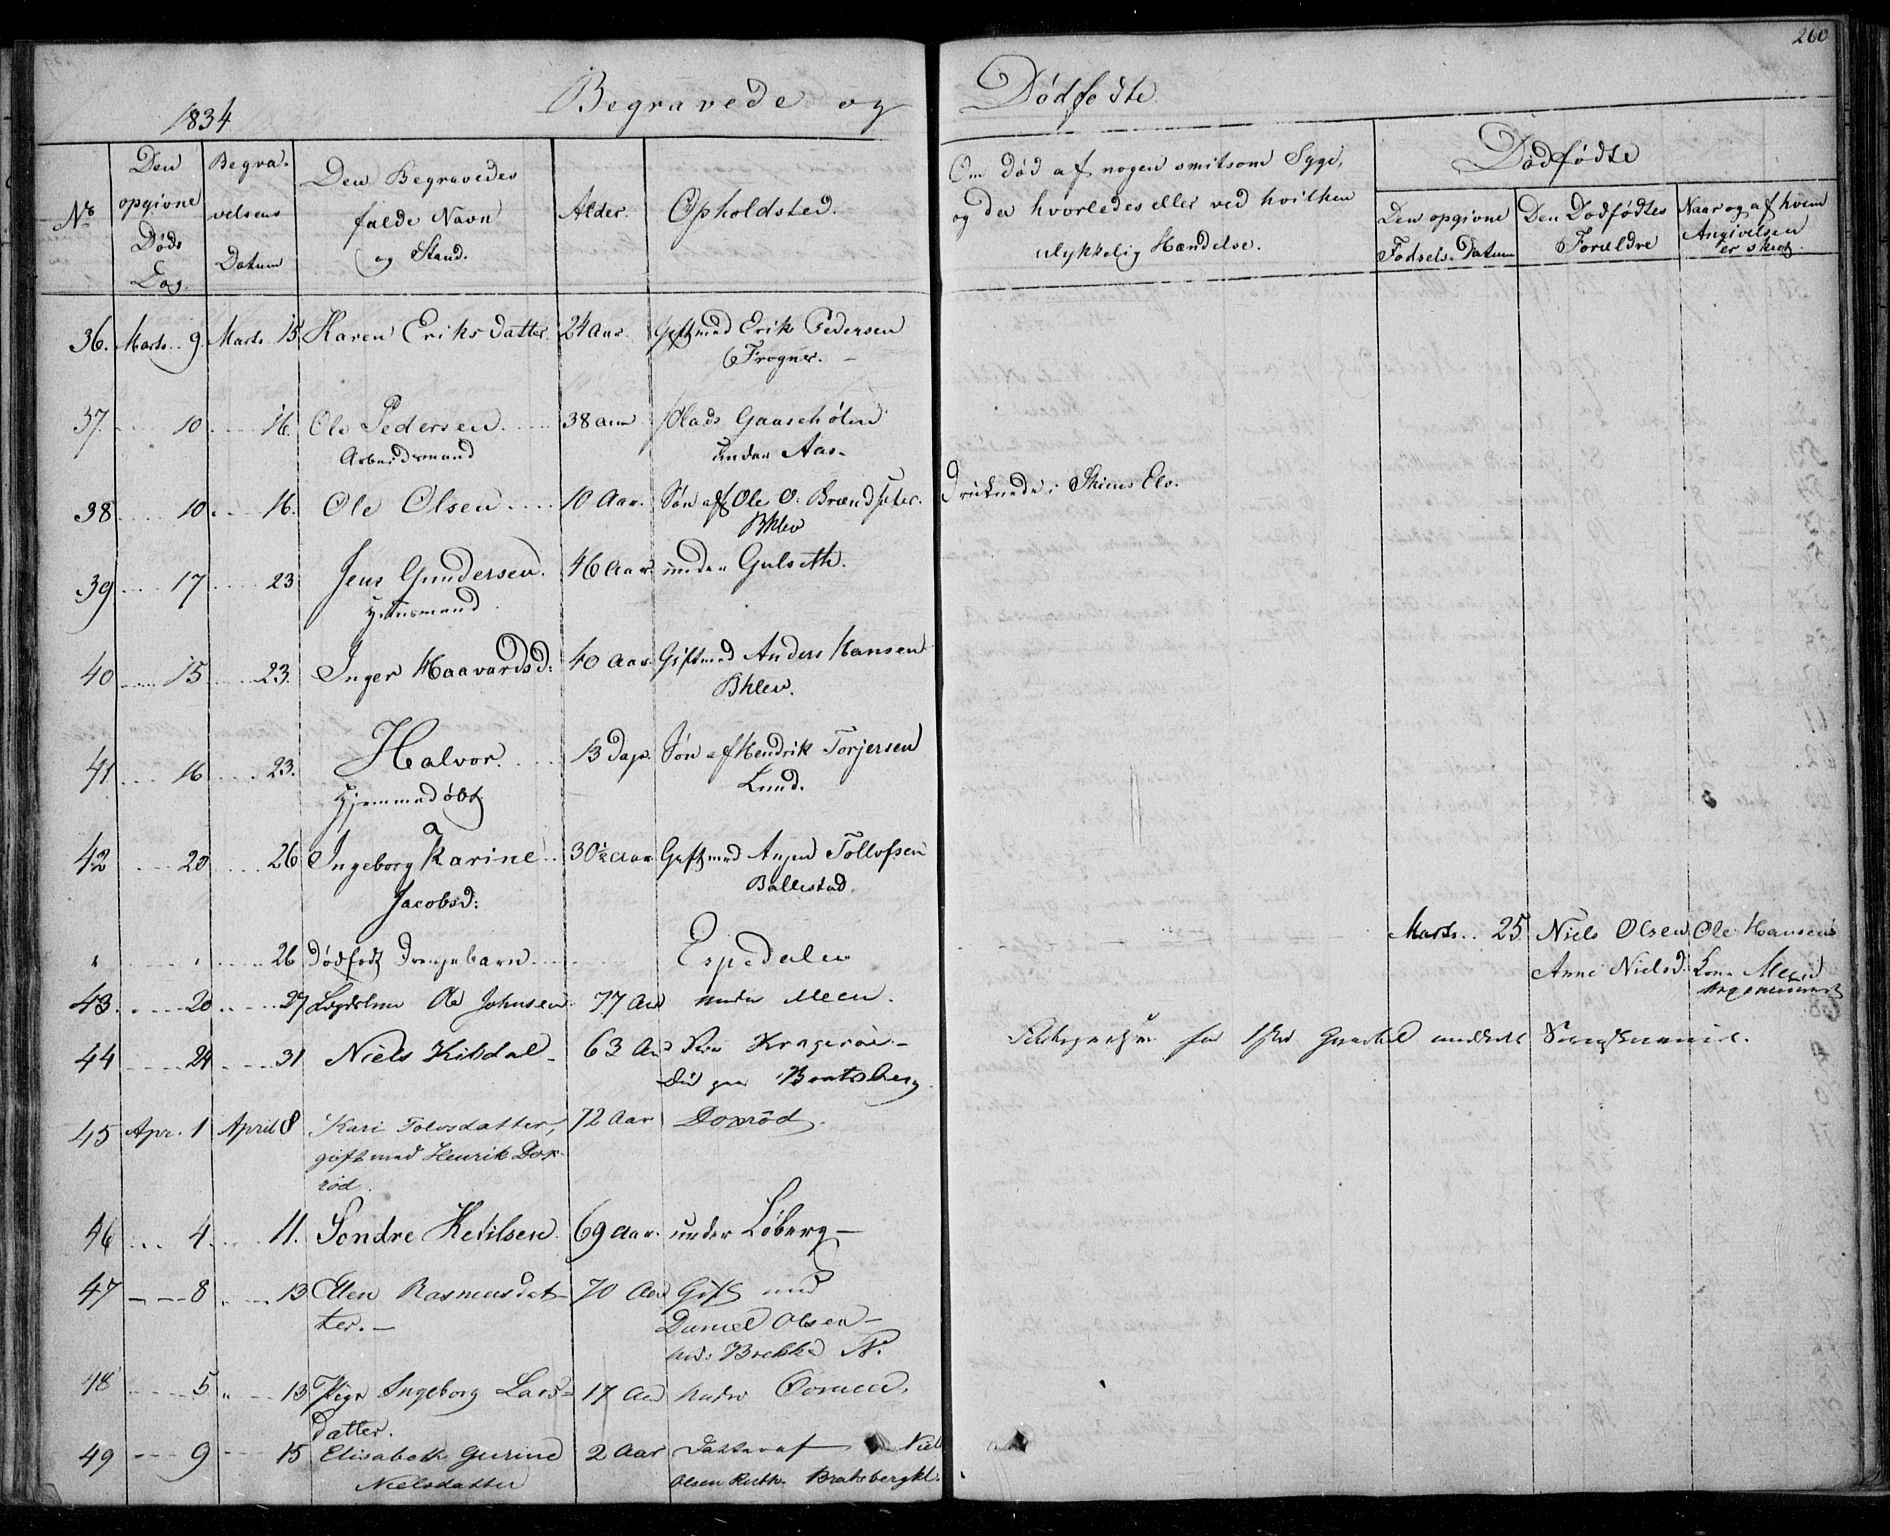 260
1834
Begravede og Dødfødte
No
Den opgivne Døds Dag.
Begravelsens Datum
Den Begravedes fulde Navn og Stand.
Alder.
Opholdsted.
Om død af nogen smitsom Syge, og da hvorledes eller ved hvilken ulykkelig Hændelse.
Dødfødte
Den opgivne Fødsels-Datum
Den Dødfødtes Forældre
Naar og af hvem Angivelsen er skeet.
36. Marts 9. Marts 15. Karen Eriksdatter. 24 Aar. Gift med Erik Pedersen
Frogner.
37. 10 16. Ole Pedersen 38 Aar Plads Gaaseholen
Arbeidsmand under Aas.
38 10 16. Ole Olsen 10 Aar. Søn af Ole O. Brændsæter. Druknede i Skiens Elv.
Bhlev
39 17 23 Jens Gundersen. 46 Aar. under Gulseth.
Huusmand
40 15 23. Inger Haavardsd: 40 Aar. Gift med Anders Hansen
Bhlev.
41 16 23. Halvor. 13 Dage. Søn af Hendrik Torjersen
Hjemmedøbt Lund.
42 20 26 Ingeborg Karine 30½ Aar Gift med Tollofsen
Jacobsd: Ballestad.
" " 26 Dødfødt Drengebarn Espedalen Marts 25 Niels Olsen Ole Hansens
Anne Nielsd: Kone Meen
43 20 27 Lægdslem Ole Johnsen 77 Aar under Meen.
44 24 31 Niels Kildal 63 Aar Fra Kragerøe
Død paa Bratsberg
45 Apr. 1 April 8 Kari Tolvsdatter, 72 Aar Doxrød.
gift med Henrik Dox-
rød.
46 4 11. Søndre Ketilsen 69 Aar. under Løberg
47 8 13 Ellen Rasmusdat- 70 Aar Gift med
ter. Daniel Olsen
und: Brekke N.
48 5 13 Pige Ingeborg Lars- 17 Aar under
datter.
49 9 15 Elisabeth Gurine 2 Aar Datter af Niels
Nielsdatter Olsen Bratsbergkl.